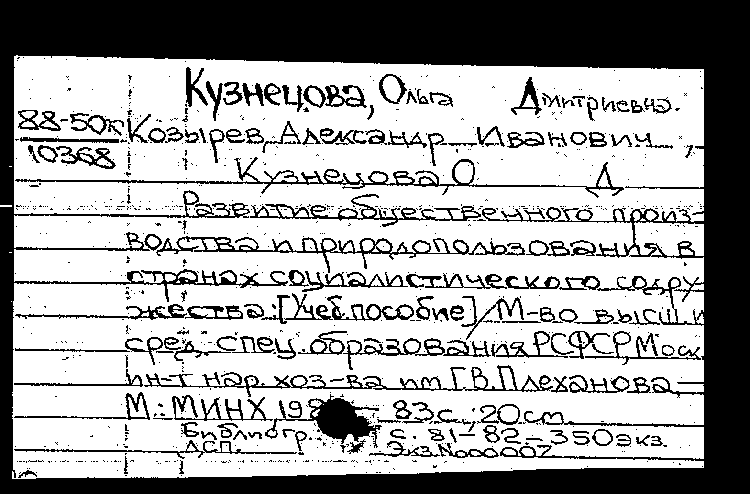 Кузнецова, Ольга Дмитриевна.
88-50к
10368
Козырев, Александр Иванович,
Кузнецова, О Д
Развитие общественного произ-
водства и природопользования в
странах социалистического содру-
жества: [Учеб. пособие] / М-во высш и
сред. спец. образования РСФСР, Моск.
ин-т нар. хоз-ва им Г.В. Плеханова. —
М.: МИНХ, 198 — 83с.; 20см.
Библиогр. с. 81-82 — 350экз.
ДСП. Экз.№000007